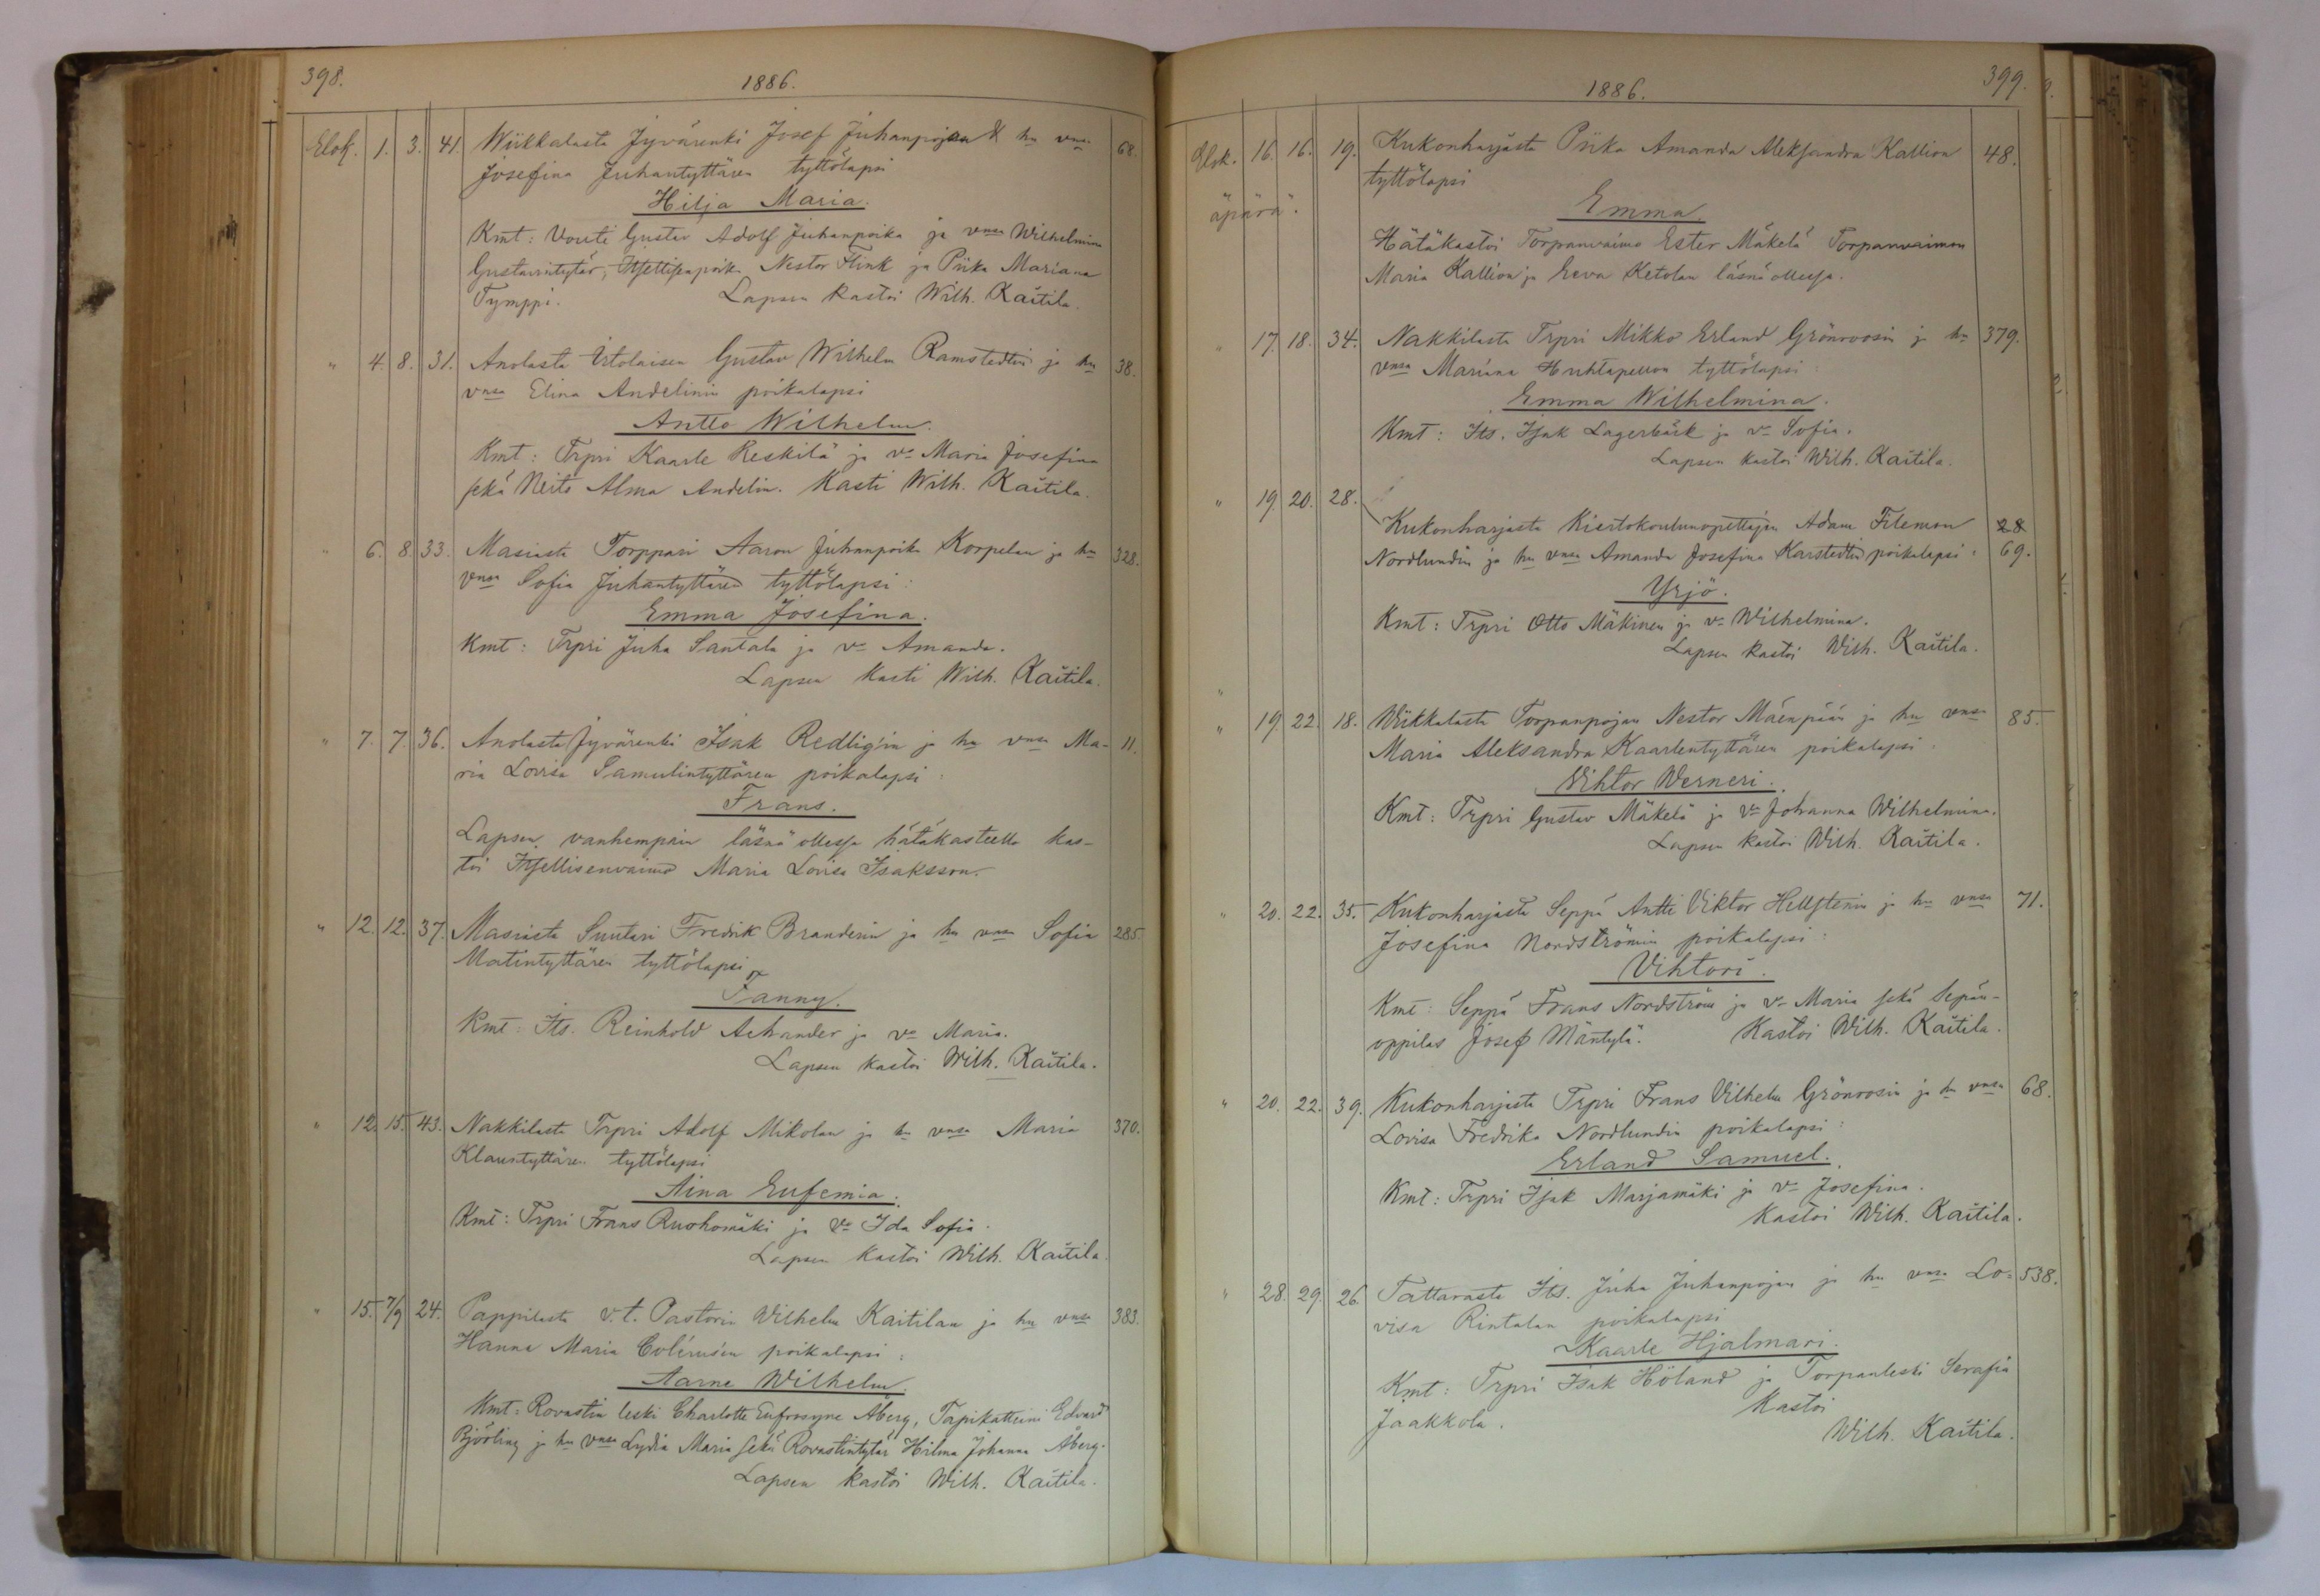 398.
1886.
Elok. 1. 3. 41. Wiikkalasta Jyvärenki Josef Juhanpojan & hn vmsa 68.
Josefina Juhantyttären tyttölapsi
Hilja Maria.
Kmt: Vouti Gustav Adolf Juhanpoika ja vmsa Wilhelmina
Gustavintytär, Itsellisenpoika Nestor Flink ja Piika Mariana
Tymppi. Lapsen kastoi Wilh. Kaitila.
" 4. 8. 31. Anolasta Gustav Wilhelm Ramstedtin ja hn 38.
vmsa Elina Andelinin poikalapsi
Antto Wilhelm.
Kmt: Trpri Kaarle Keskilä ja vo Maria Josefina
sekä Neito Alma Andelin. Kasti Wilh. Kaitila.
" 6. 8. 33. Masiasta Torppari Aaron Juhanpoika Korpelan ja hn 328.
vmsa Sofia Juhantyttären tyttölapsi:
Emma Josefina.
Kmt: Trpri Juha Santala ja vo Amanda.
Lapsen kasti Wilh. Kaitila.
" 7. 7. 36. Anolasta Jyvärenki Isak Redlig'in ja hn vmsa Ma- 11.
ria Lovisa Samulintyttären poikalapsi:
Frans.
Lapsen vanhempain läsnä ollessa hätäkasteella kas-
toi Itsellisenvaimo Maria Lovisa Isaksson.
" 12. 12. 37. Masiasta Suutari Fredrik Branderin ja hn vmsa Sofia 285.
Matintyttären tyttölapsi
Fanny.
Kmt: Its. Reinhold Achrander ja vo Maria.
Lapsen kastoi Wilh. Kaitila.
" 12. 15. 43. Nakkilasta Trpri Adolf Mikolan ja hn vmsa Maria 370.
Klauntyttären tyttölapsi
Aina Eufemia.
Kmt: Trpri Frans Ruohomäki ja vo Ida Sofia.
Lapsen kastoi Wilh. Kaitila.
" 15. 7/9 24. Pappilasta v.t. Pastorin Wilhelm Kaitilan ja hn vmsa 383.
Hanna Maria Colérus'en poikalapsi:
Aarne Wilhelm.
Kmt: Rovastin leski Charlotte Eufrosyne Åberg, Tapikatteini Edvard
Björling ja hn vmsa Lydia Maria sekä Rovastintytär Hilma Johanna Åberg.
Lapsen kastoi Wilh. Kaitila.
399.
1886.
Elok. 16. 16. 19. Kukonharjasta Piika Amanda Aleksandra Kallion 48.
tyttölapsi
äpärä.
Emma.
Hätäkastoi Torpanvaimo Ester Mäkelä Torpanvaimon
Maria Kallion ja Eeva Ketolan läsnäollessa.
" 17. 18. 34. Nakkilasta Trpri Mikko Erland Grönroosin ja hn 379.
vmsa Mariana Huhtapellon tyttölapsi:
Emma Wilhelmina.
Kmt: Its. Isak Lagerbäck ja vo Sofia.
Lapsen kastoi Wilh. Kaitila.
" 19. 20. 28. Kukonharjasta Kiertokoulunopettajan Adam Filemon 28
Nordlundin ja hn vmsa Amanda Josefina Karstedtin poikalapsi: 69.
Yrjö.
Kmt: Trpri Otto Mäkinen ja vo Wilhelmina.
Lapsen kastoi Wilh. Kaitila.
"
" 19. 22. 18. Wiikkalasta Torpanpojan Nestor Mäenpään ja hn vmsa 85.
Maria Aleksandra Kaarlentyttären poikalapsi:
Vihtor Werneri.
Kmt: Trpri Gustav Mäkelä ja vo Johanna Wilhelmina.
Lapsen kastoi Wilh. Kaitila.
" 20. 22. 35. Kukonharjasta Seppä Antti Viktor Hellstenin ja hn vmsa 71.
Josefina Nordströmin poikalapsi:
Vihtori.
Kmt: Seppä Frans Nordström ja vo Maria sekä Sepän-
oppilas Josef Mäntylä. Kastoi Wilh. Kaitila.
" 20. 22. 39. Kukonharjasta Trpri Frans Vilhelm Grönroosin ja hn vmsa 68.
Lovisa Fredrika Nordlundin poikalapsi:
Erland Samuel.
Kmt: Trpri Isak Marjamäki ja vo Josefina.
Kastoi Wilh. Kaitila.
" 28. 29. 26. Tattarasta Its. Juha Juhanpojan ja hn vmsa Lo- 538.
visa Rintalan poikalapsi
Kaarle Hjalmari.
Kmt: Trpri Isak Höland ja Torpanleski Serafia
Jaakkola. Kastoi
Wilh. Kaitila.